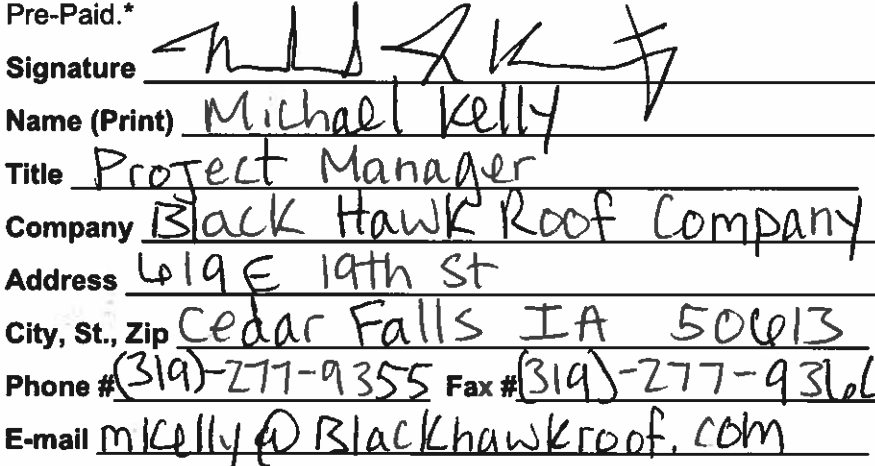 Pre-Paid.*
Signature
Name (Print) Michael Kelly
Title Project Manager
Company Black Hawk Roof Company
Address 619 E 19th St
City, St., Zip Cedar Falls IA 50613
Phone # (319)-277-9355 Fax # (319)-277-936
E-mail mkelly@Blackhawkroof.com